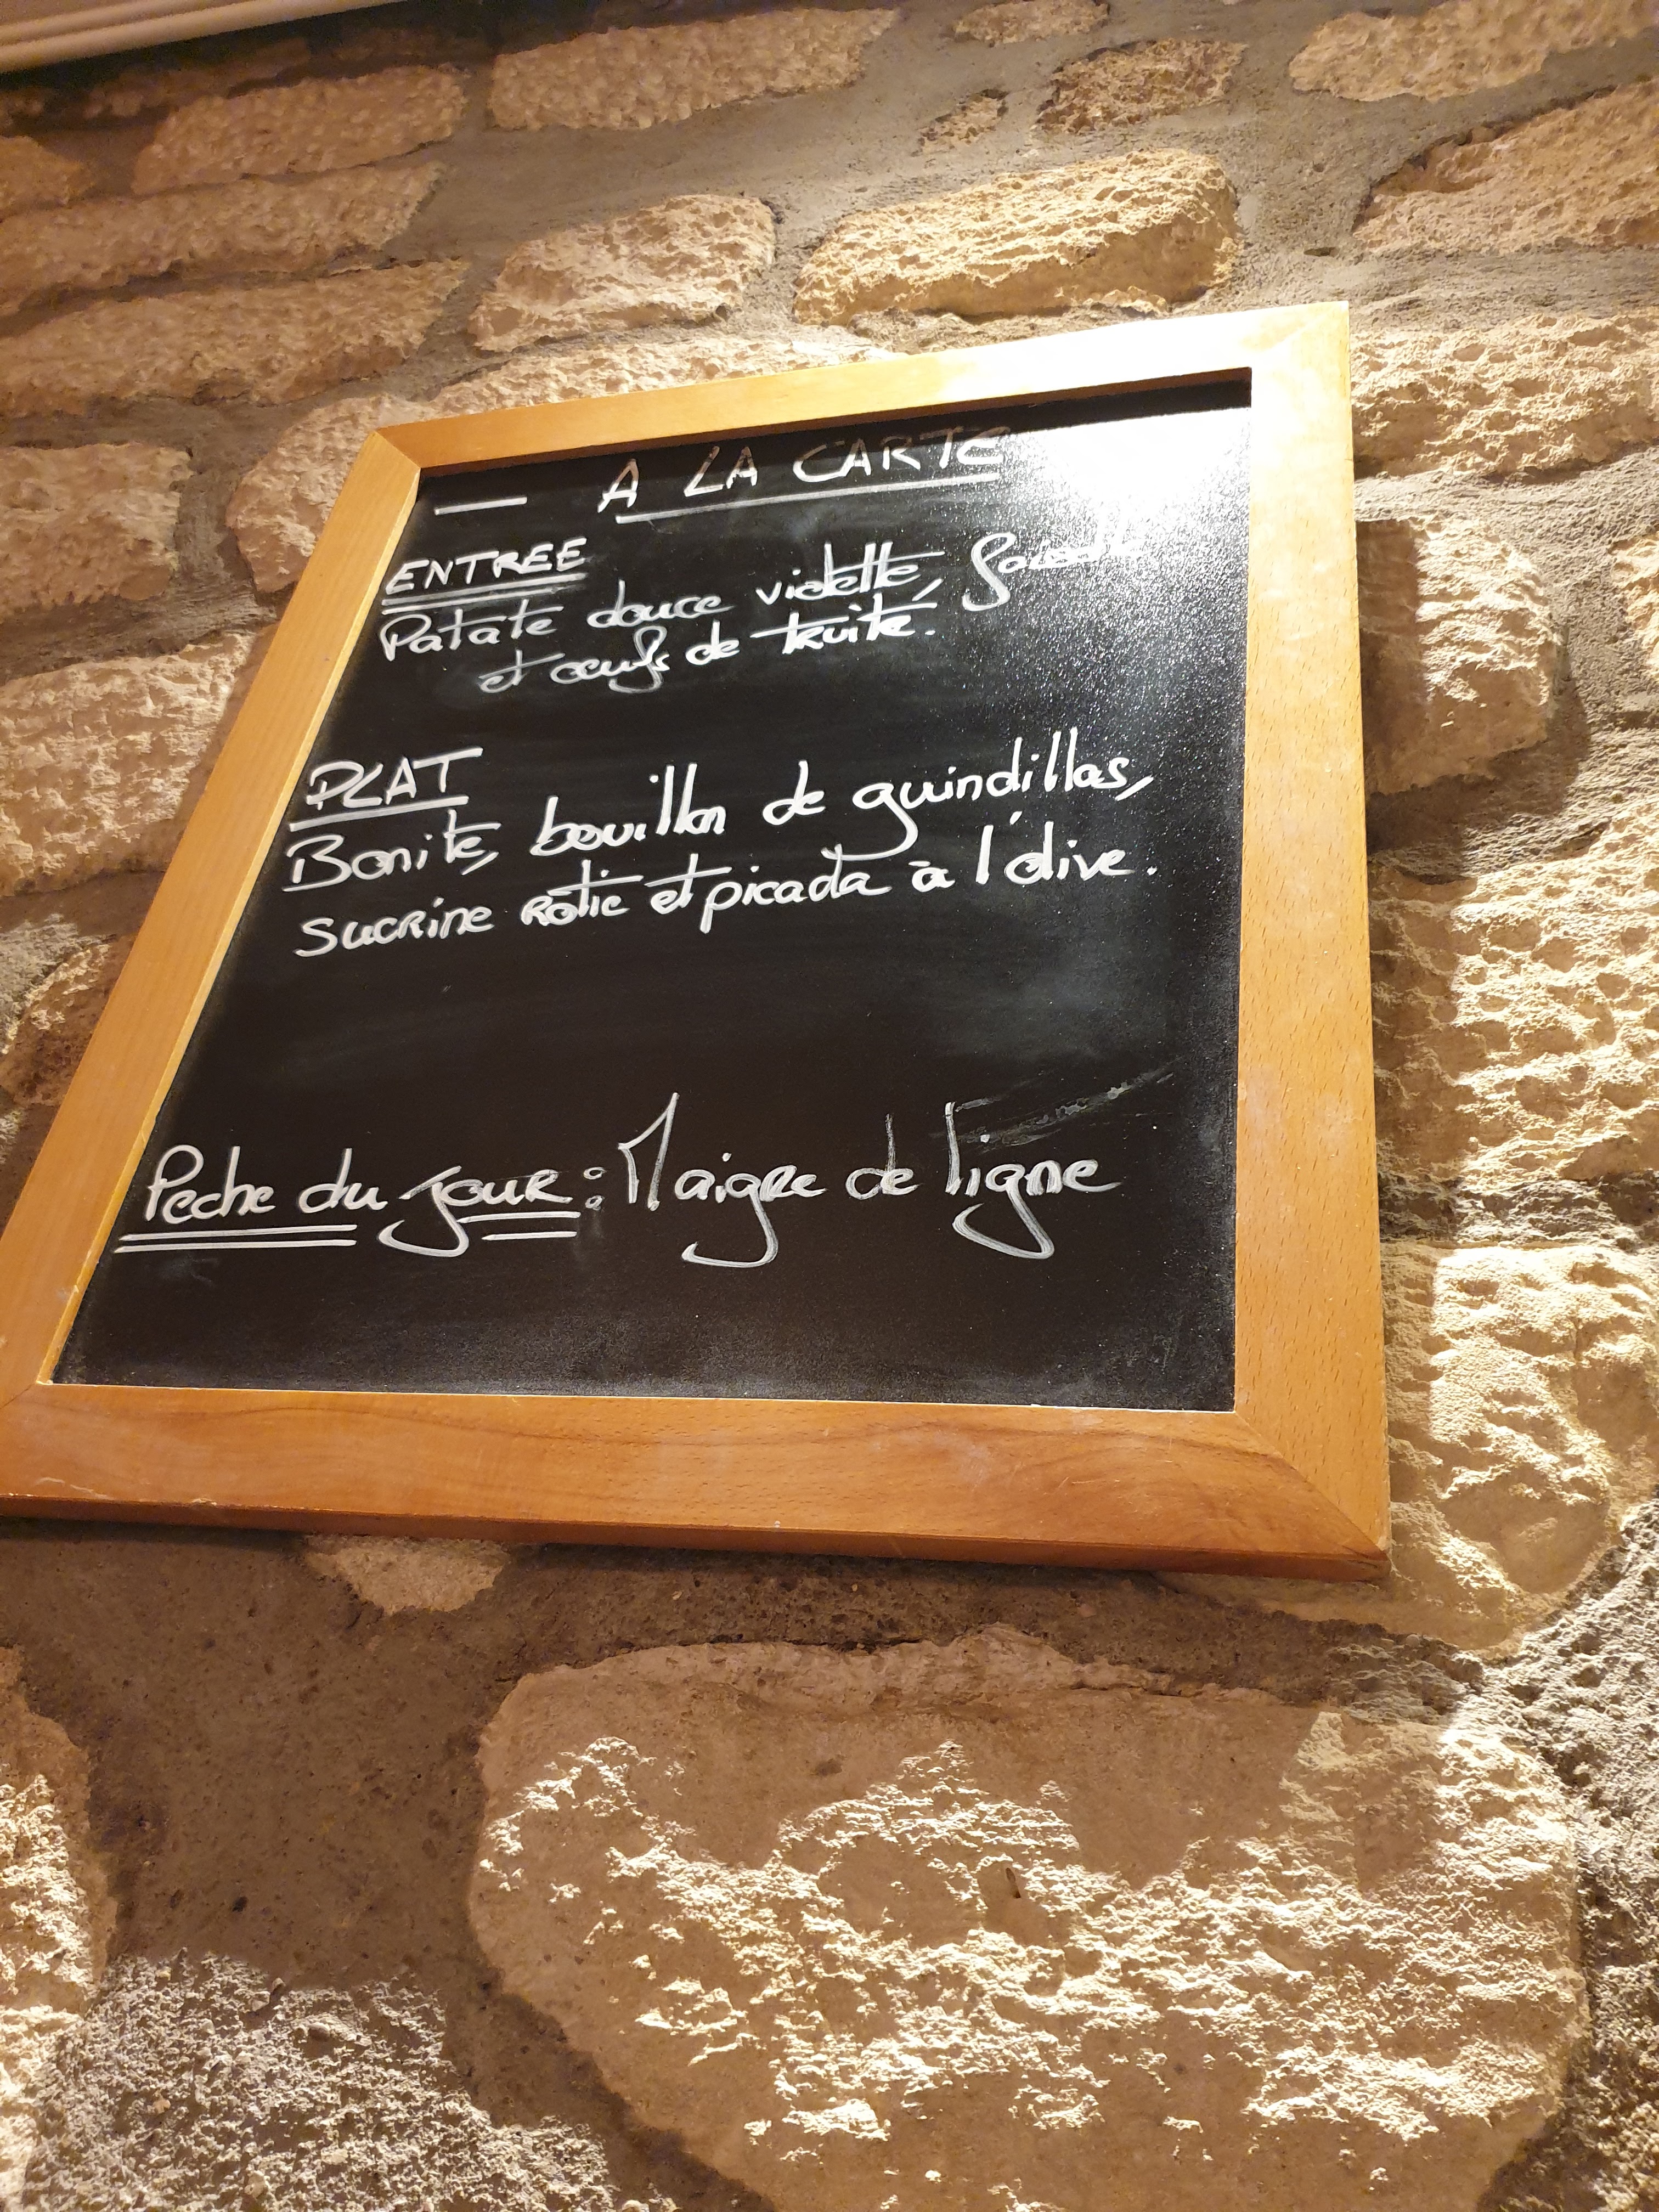 A LA CARTE
ENTREE
Patate douce violette,
et oeufs de truite.
PLAT
Bonite, bouillon de guindillas,
sucrine rôtie et picada à l'olive.
Peche du jour : Maigre de ligne